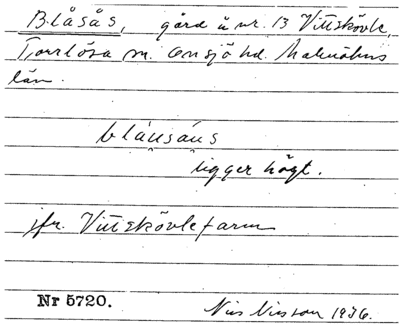 Blåsås, gård å nr. 13 Vittskövle,
Torrlösa sn. Onsjö hd. Malmöhus
län.
blausaus
ligger högt.
jfr. Vittskövlefarm
Nr 5720.
Nils Nilsson 1936.